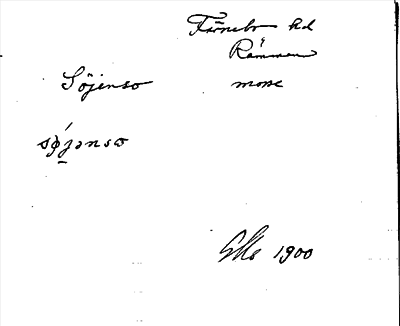 Färnebo hd
Rämmen
Söjenso mosse
søjənsω
1900